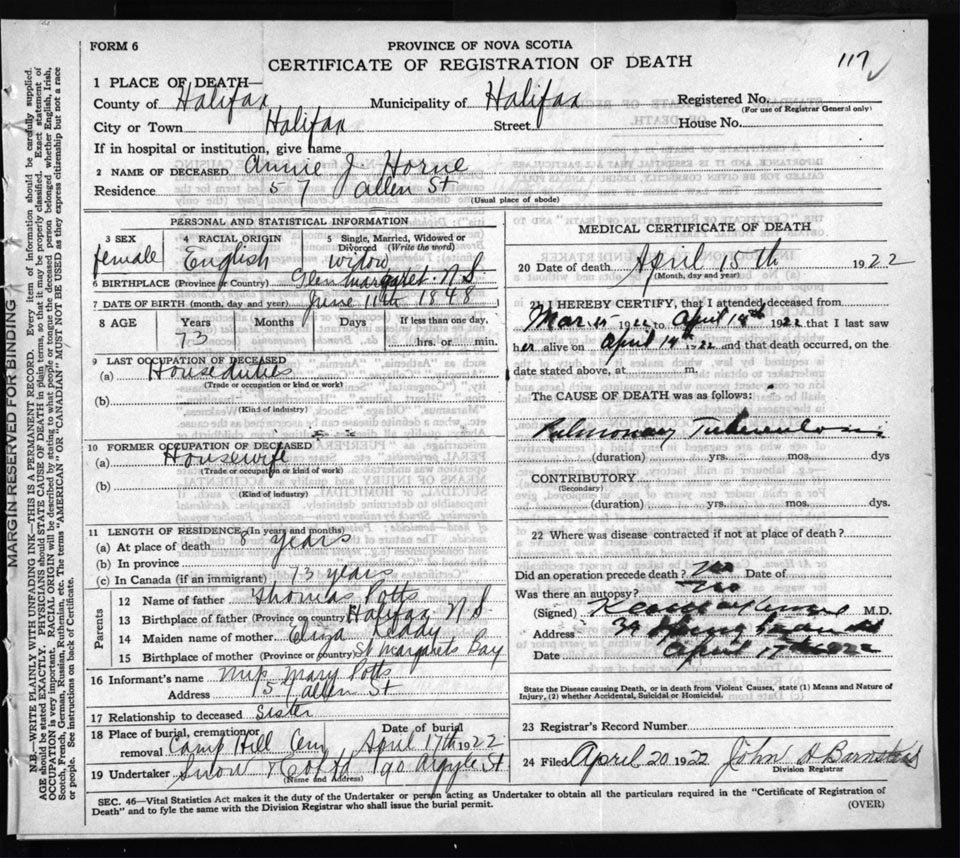 FORM 6
PROVINCE OF NOVA SCOTIA
CERTIFICATE OF REGISTRATION OF DEATH
117
1 PLACE OF DEATH—
County of Halifax Municipality of Halifax Registered No.
(For use of Registrar General only)
City or Town Halifax Street House No.
If in hospital or institution, give name
2 NAME OF DECEASED Annie J Horne
Residence 57 Allen St
(Usual place of abode)
PERSONAL AND STATISTICAL INFORMATION
3 SEX 4 RACIAL ORIGIN 5 Single, Married, Widowed or Divorced (Write the word)
female English widow
6 BIRTHPLACE (Province or Country) Glen Margaret N S
7 DATE OF BIRTH (month, day and year) June 11th 1848
8 AGE Years Months Days If less than one day,
73 hrs. or min.
9 LAST OCCUPATION OF DECEASED
(a) Houseduties
(Trade or occupation or kind or work)
(b)
(Kind of industry)
10 FORMER OCCUPATION OF DECEASED
(a) Housewife
(Trade or occupation or kind of work)
(b)
(Kind of industry)
11 LENGTH OF RESIDENCE (In years and months)
(a) At place of death 8 years
(b) In province
(c) In Canada (if an immigrant) 73 years
Parents
12 Name of father Thomas Potts
13 Birthplace of father (Province or country) Halifax N S
14 Maiden name of mother Eliza
15 Birthplace of mother (Province or country) St Margarets Bay
16 Informant's name Mrs Mary Potts
Address 157 Allen St
17 Relationship to deceased Sister
18 Place of burial, cremation or removal Camp Hill Cem Date of burial April 17th 1922
19 Undertaker Snow & Co Ltd 90 Argyle St
(Name and Address)
MEDICAL CERTIFICATE OF DEATH
20 Date of death April 15th 1922
(Month, day and year)
21 I HEREBY CERTIFY, that I attended deceased from
Mar 15 1922 to April 14th 1922 that I last saw
her alive on April 14th 22 and that death occurred, on the
date stated above, at m.
The CAUSE OF DEATH was as follows:
Pulmonary Tuberculosis
(duration) yrs. mos. dys
CONTRIBUTORY
(Secondary)
(duration) yrs. mos. dys.
22 Where was disease contracted if not at place of death?
Did an operation precede death? No Date of
Was there an autopsy? No
(Signed) M.D.
Address
Date April 17th 1922
State the Disease causing Death, or in death from Violent Causes, state (1) Means and Nature of
Injury, (2) whether Accidental, Suicidal or Homicidal.
23 Registrar's Record Number
24 Filed April 20 1922 John A Barnstead
Division Registrar
SEC. 46—Vital Statistics Act makes it the duty of the Undertaker or person acting as Undertaker to obtain all the particulars required in the "Certificate of Registration of
Death" and to fyle the same with the Division Registrar who shall issue the burial permit.
(OVER)
MARGIN RESERVED FOR BINDING
N.B.—WRITE PLAINLY WITH UNFADING INK—THIS IS A PERMANENT RECORD. Every item of information should be carefully supplied.
AGE should be stated EXACTLY. PHYSICIANS should STATE CAUSE OF DEATH in plain terms, so that it may be properly classified. Exact statement of
OCCUPATION is very important. RACIAL ORIGIN will be described by stating to what people or tongue the deceased person belonged whether English, Irish,
Scotch, French, German, Russian, Ruthenian, etc. The terms "AMERICAN" OR "CANADIAN" MUST NOT BE USED as they express citizenship but not a race
or people. See instructions on back of Certificate.